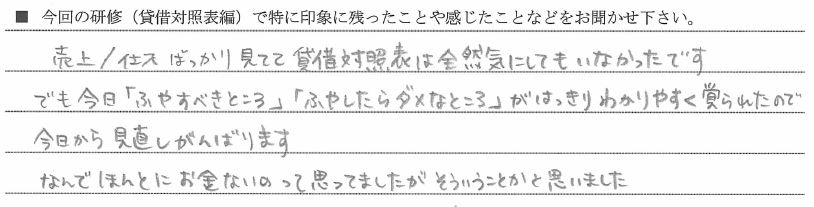 ■ 今回の研修（貸借対照表編）で特に印象に残ったことや感じたことなどをお聞かせ下さい。
売上/仕入ばっかり見てて貸借対照表は全然気にしてもいなかったです
でも今日「ふやすべきところ」「ふやしたらダメなところ」がはっきりわかりやすく覚られたので
今日から見直しがんばります
なんでほんとにお金ないのって思ってましたがそういうことかと思いました